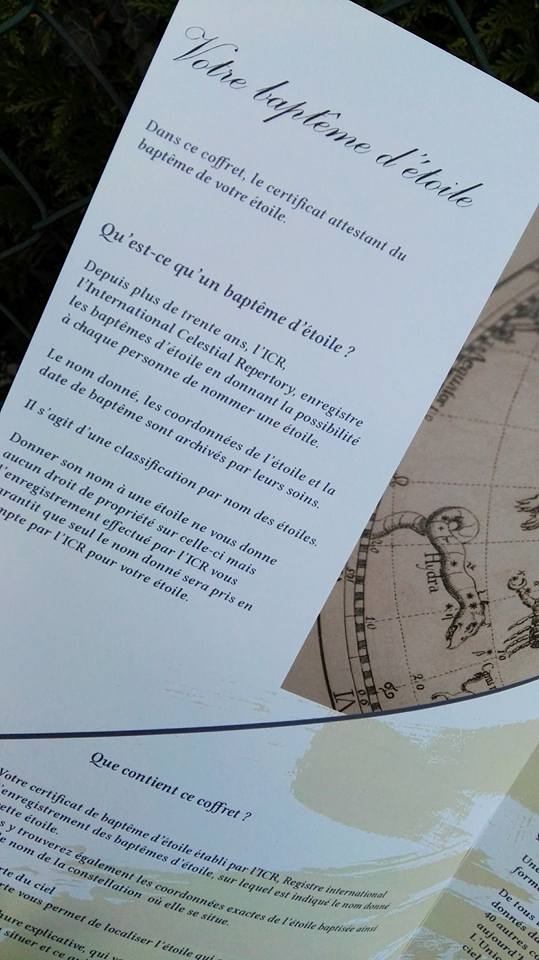 Votre baptême d'étoile
Dans ce coffret, le certificat attestant du
baptême de votre étoile.
Qu'est-ce qu'un baptême d'étoile ?
Depuis plus de trente ans, l'ICR,
l'International Celestial Repertory, enregistre
les baptêmes d'étoile en donnant la possibilité
à chaque personne de nommer une étoile.
Le nom donné, les coordonnées de l'étoile et la
date de baptême sont archivés par leurs soins.
Il s'agit d'une classification par nom des étoiles.
Donner son nom à une étoile ne vous donne
aucun droit de propriété sur celle-ci mais
l'enregistrement effectué par l'ICR vous
garantit que seul le nom donné sera pris en
par l'ICR pour votre étoile.
Hydra
VI
Que contient ce coffret ?
Votre certificat de baptême d'étoile établi par l'ICR, Registre international
d'enregistrement des baptêmes d'étoile, sur lequel est indiqué le nom donné
étoile.
y trouverez également les coordonnées exactes de l'étoile baptisée ainsi
le nom de la constellation où elle se situe.
du ciel
vous permet de localiser l'étoile qui
explicative, qui
situer et ce
Une
De tous
donnés
40 autres
aujourd'
L'Union
ciel